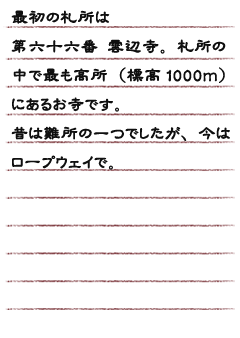 最初の札所は
第六十六番 雲辺寺。札所の
中で最も高所（標高1000m）
にあるお寺です。
昔は難所の一つでしたが、今は
ロープウェイで。